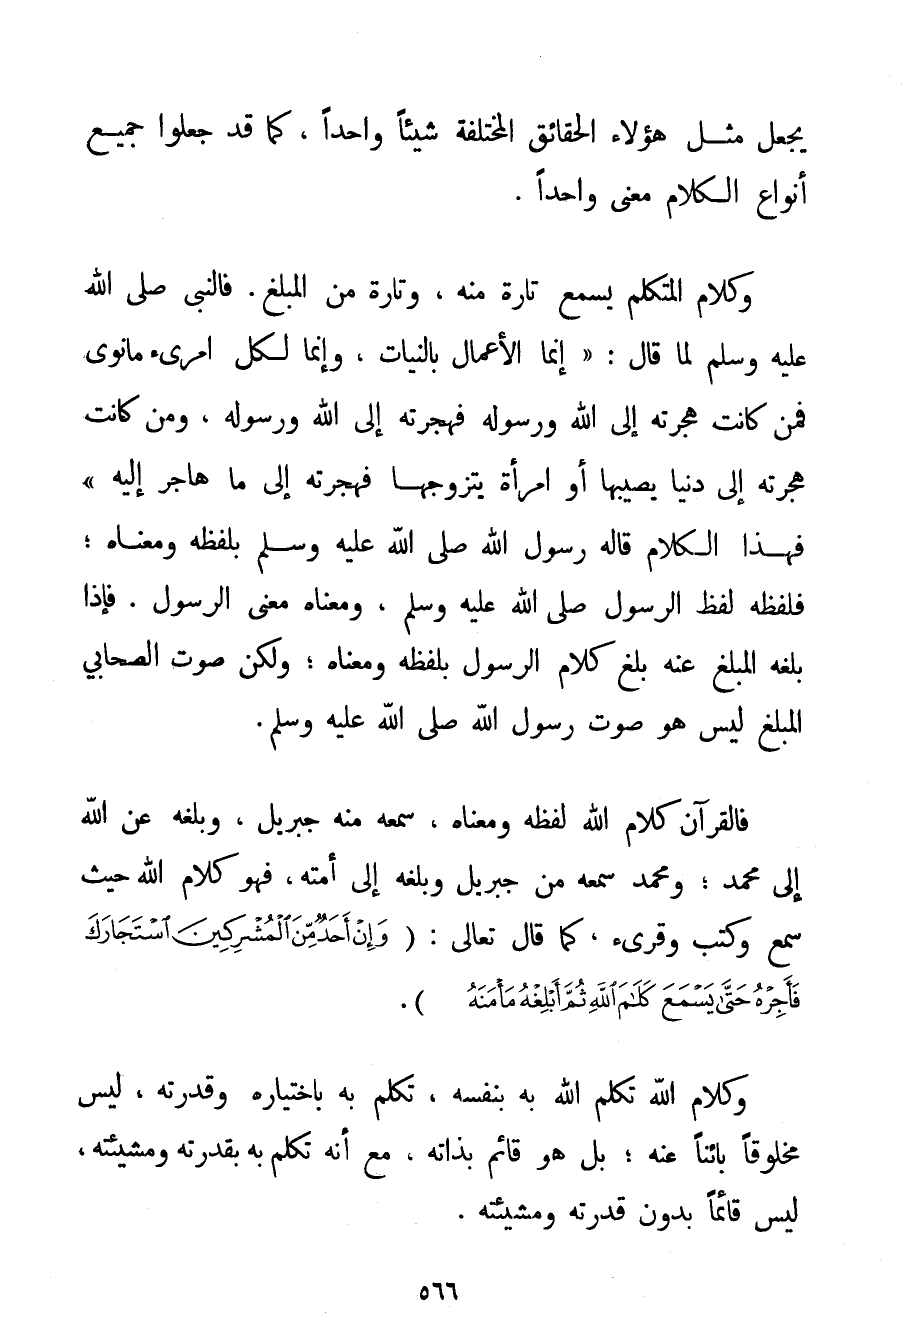 يجعل مثل هؤلاء الحقائق المختلفة شيئاً واحداً ، كما قد جعلوا جميع
أنواع الكلام معنى واحداً .
وكلام المتكلم يسمع تارة منه ، وتارة من المبلغ . فالنبي صلى الله
عليه وسلم لما قال : « إنما الأعمال بالنيات ، وإنما لكل امرىء مانوى
فمن كانت هجرته إلى الله ورسوله فهجرته إلى الله ورسوله ، ومن كانت
هجرته إلى دنيا يصيبها أو امرأة يتزوجها فهجرته إلى ما هاجر إليه »
فهذا الكلام قاله رسول الله صلى الله عليه وسلم بلفظه ومعناه ؛
فلفظه لفظ الرسول صلى الله عليه وسلم ، ومعناه معنى الرسول . فإذا
بلغه المبلغ عنه بلغ كلام الرسول بلفظه ومعناه ؛ ولكن صوت الصحابي
المبلغ ليس هو صوت رسول الله صلى الله عليه وسلم .
فالقرآن كلام الله لفظه ومعناه ، سمعه منه جبريل ، وبلغه عن الله
إلى محمد ؛ ومحمد سمعه من جبريل وبلغه إلى أمته ، فهو كلام الله حيث
سمع وكتب وقرىء ، كما قال تعالى : ( وَإِنْ أَحَدٌ مِّنَ ٱلْمُشْرِكِينَ ٱسْتَجَارَكَ
فَأَجِرْهُ حَتَّىٰ يَسْمَعَ كَلَٰمَ ٱللَّهِ ثُمَّ أَبْلِغْهُ مَأْمَنَهُ ) .
وكلام الله تكلم الله به بنفسه ، تكلم به باختياره وقدرته ، ليس
مخلوقاً بائناً عنه ؛ بل هو قائم بذاته ، مع أنه تكلم به بقدرته ومشيئته ،
ليس قائماً بدون قدرته ومشيئته .
٥٦٦